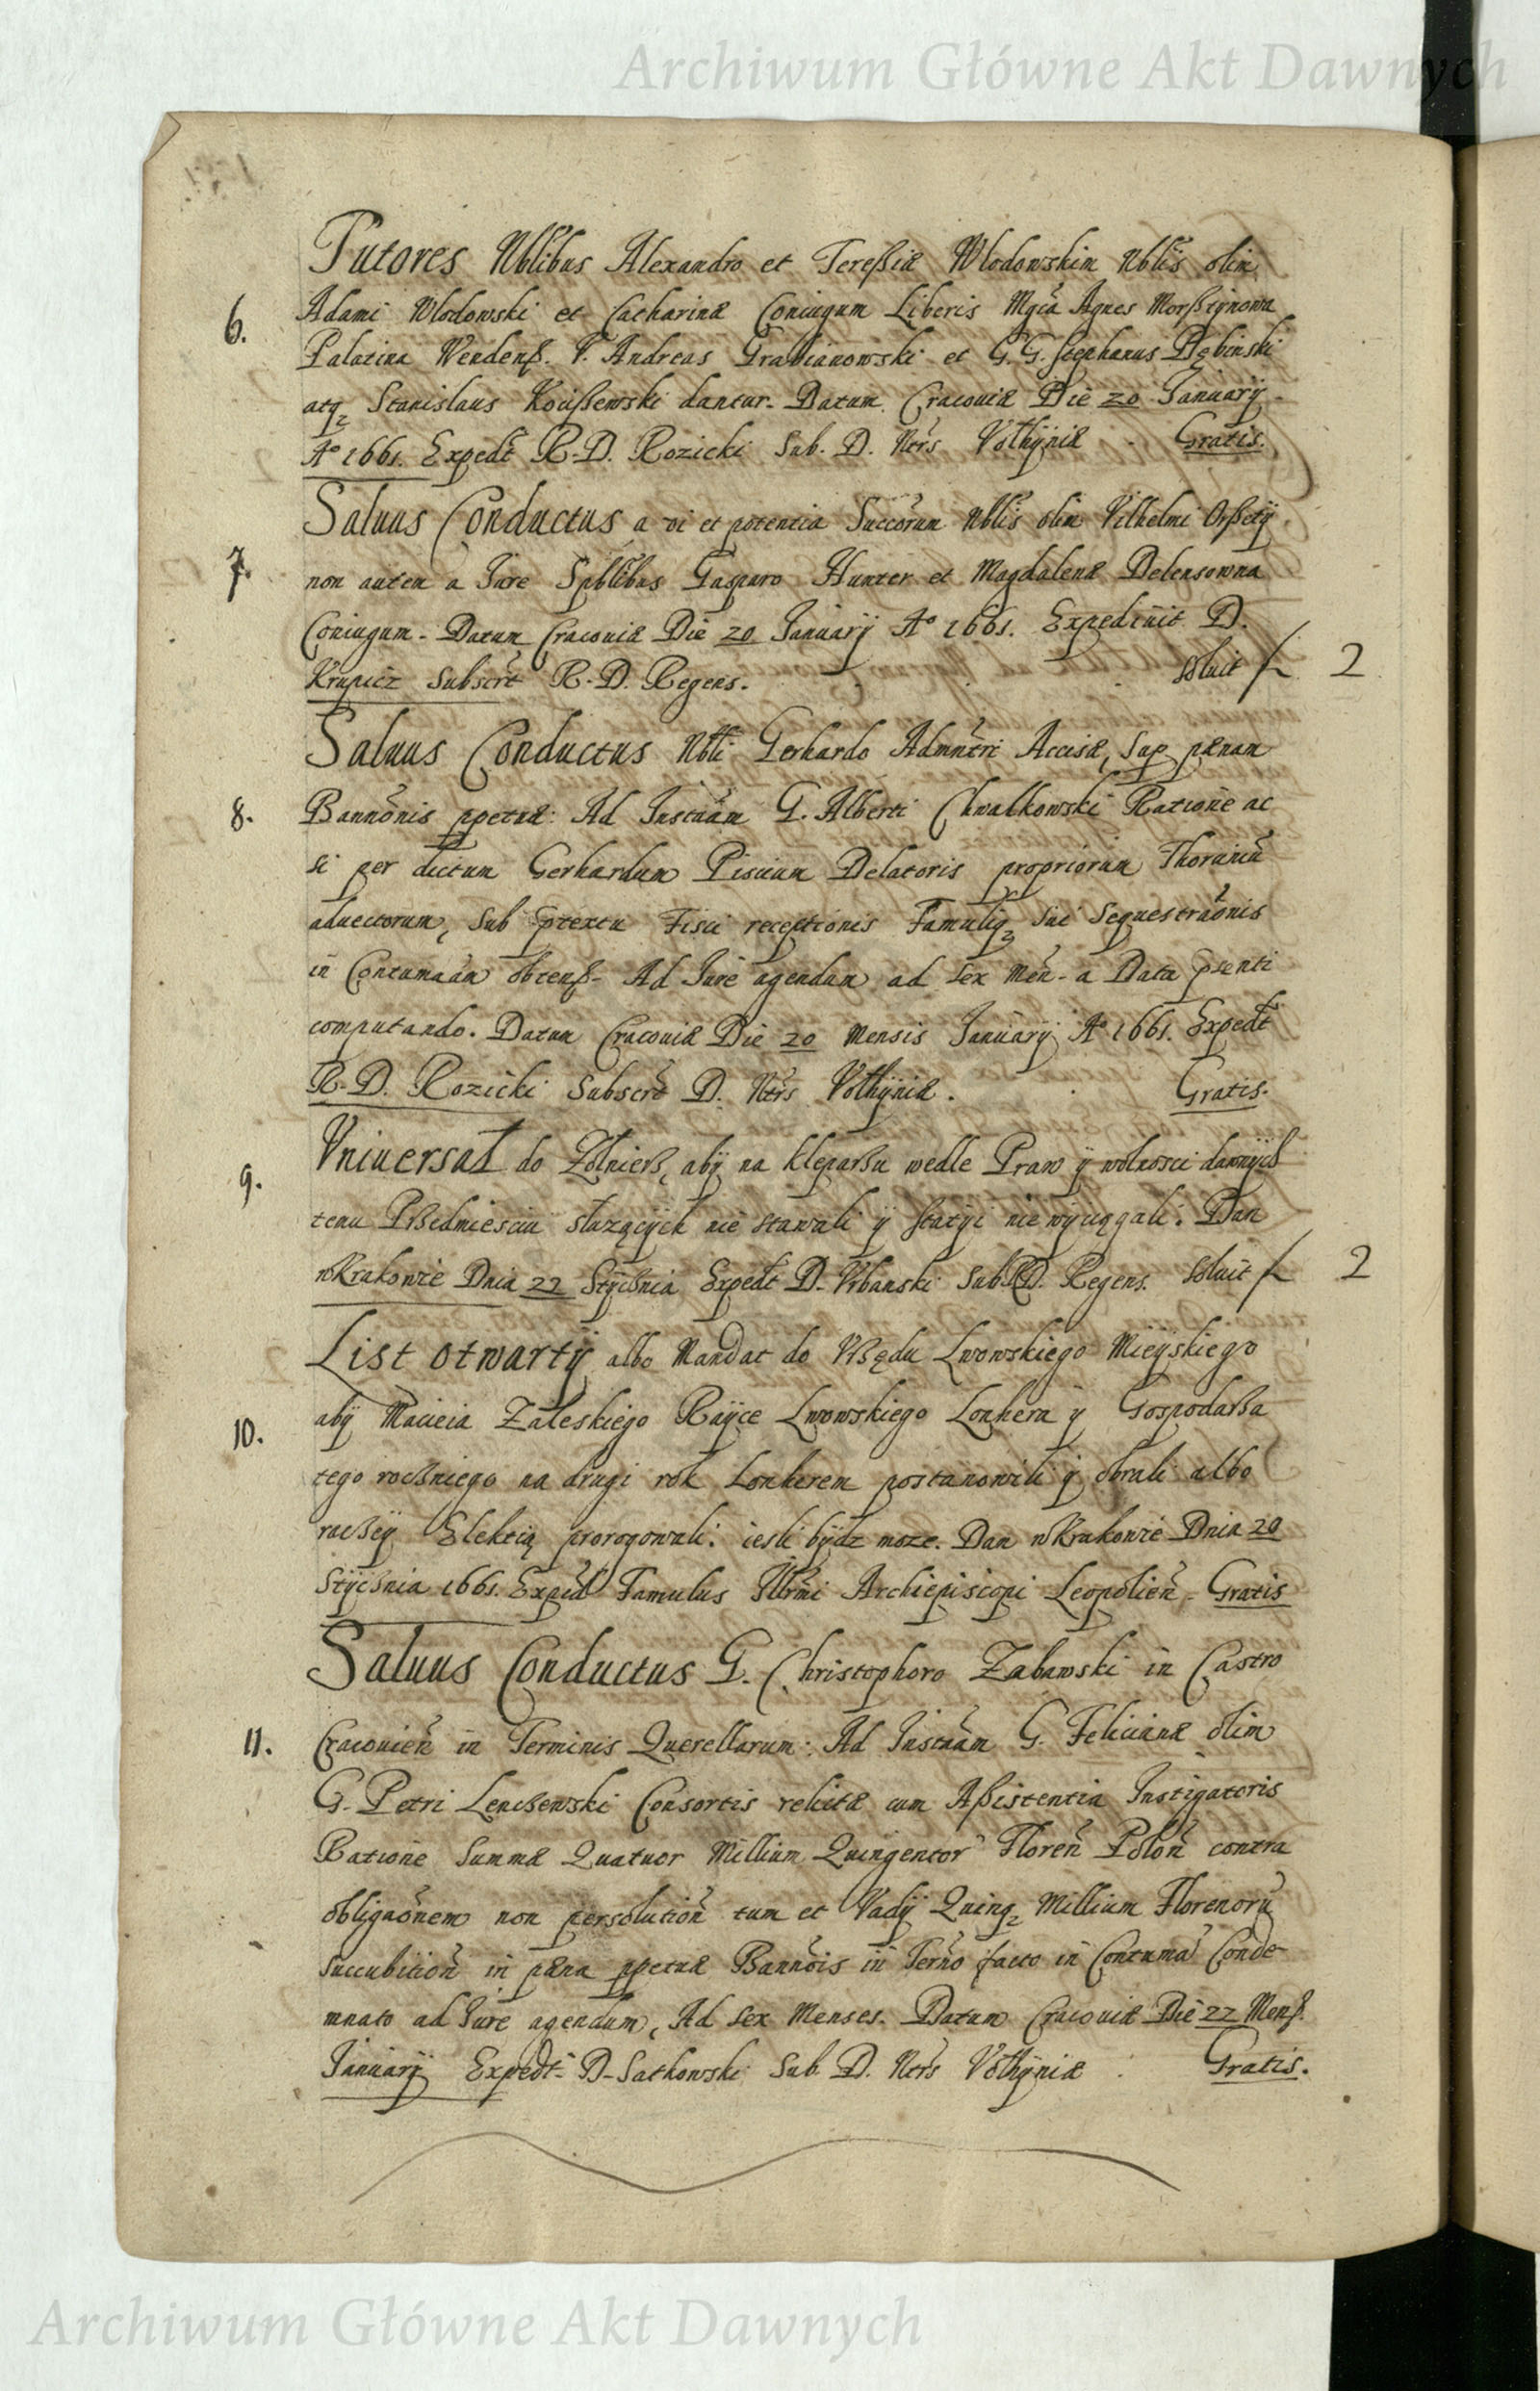 Archiwum Główne Akt Dawnych
Tutores Nblibus Alexandro et Tereßiæ Wlodowskim Nblis olim
6.
Adami Wlodowski et Catharinæ Coniugum Liberis Mgca Agnes Morßtynowa
Palatina Wendenß. V. Andreas Grabianowski et G. G. Stephanus Dębinski
atq₃ Stanislaus Koißewski dantur. Datum Cracouiæ Die 20 Ianuarij
Aº 1661. Expedt R. D. Rozicki Sub. D. Ntrs Volhyniæ Gratis.
Saluus Conductus a vi et potentia Succorum Nblis olim Vilhelmi Orßetij
7.
non autem a Iure Spblibus Gasparo Hunter et Magdalenæ Delensowna
Coniugum. Datum Cracouiæ Die 20 Ianuarij Aº 1661. Expediuit D.
Krupicz Subscrt R. D. Regens. Soluit f 2
Saluus Conductus Nbli Gerhardo Admntri Accisæ, Sup pænam
8.
Bannonis ppetuæ: Ad Instam G. Alberti Chwalkowski Ratione ac
si per dictum Gerhardum Piscium Delatoris propriorum Thoruniu
aduectorum, Sub prextu Fisci receptionis Famuliq₃ Sui Sequestraonis
in Contumaam obtenß. Ad Iure agendum ad sex Men. a Data psenti
computando. Datum Cracouiæ Die 20 Mensis Ianuarij Aº 1661. Expedt
R. D. Rozicki Subscrt D. Ntrs Volhyniæ. Gratis.
Vniuersał do Zołnierß, aby na Kleparßu wedle Praw y wolnosci dawnych
9.
temu Prßedmiesciu słuzących nie stawali y Statyi nie wyciągali. Dan
wKrakowie Dnia 22 Stycßnia Expedt D. Vrbanski Sub R D. Regens. Soluit f 2
List otwarty albo Mandat do Vrßędu Lwowskiego Mieyskiego
aby Macieia Zaleskiego Rayce Lwowskiego Lonhera y Gospodarßa
10.
tego rocßniego na drugi rok Lonherem postanowili y obrali albo
racßey Elekcią prorogowali. iesli bydz moze. Dan wKrakowie Dnia 20
Stycßnia 1661. Exped Famulus Illrmi Archiepiscopi Leopolien. Gratis
Saluus Conductus G. Christophoro Zabawski in Castro
11.
Cracouien in Terminis Querellarum: Ad Instam G. Felicianæ olim
G. Petri Lencßewski Consortis relictæ cum Aßistentia Instigatoris
Ratione Summæ Quatuor Millium Quingentor Floren Polon contra
obligaonem non persolution tum et Vadij Quinq₃ Millium Florenoru
succubition in pæna ppetuæ Bannois in Terno facto in Contuma Conde-
mnato ad Iure agendum, Ad sex Menses. Datum Cracouiæ Die 22 Menß.
Ianuarij Expedt D. Satkowski Sub. D. Ntrs Volhyniæ Gratis.
Archiwum Główne Akt Dawnych